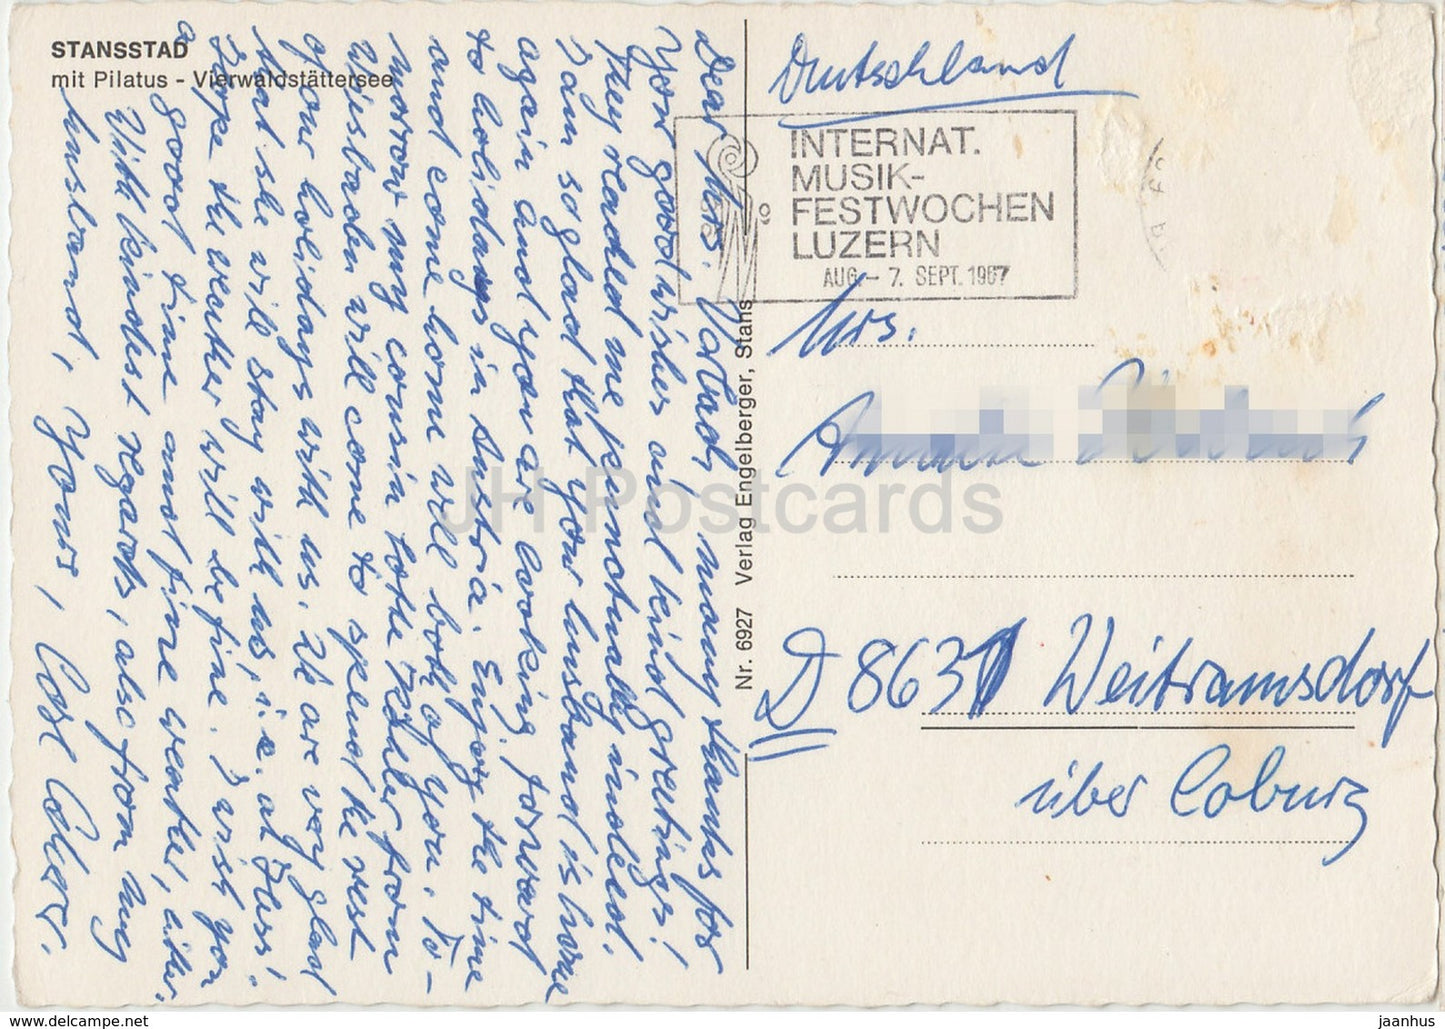 STANSSTAD
mit Pilatus - Vierwaldstättersee
Dear Mrs. many thanks for
Your good wishes and kind greetings!
They reached me punctually indeed.
I am so glad that your husband is home
again and you are looking forward
to holidays in Austria. Enjoy the time
and come home well both of you. To-
morrow my cousin Lotte from
Wiesbaden will come to spend the rest
of our holidays with us. We are very glad
that she will stay with us, i.e. at Jless!
I hope the weather will be fine. I wish you
a good time and fine weather,
With kindest regards, also from my
husband, Yours,
Nr. 6927 Verlag Engelberger, Stans
Deutschland
INTERNAT.
MUSIK-
FESTWOCHEN
LUZERN
AUG. – 7. SEPT. 1987
Mrs.
D 8631 Weitramsdorf
über Coburg
JH Postcards
www.delcampe.net
jaanhus